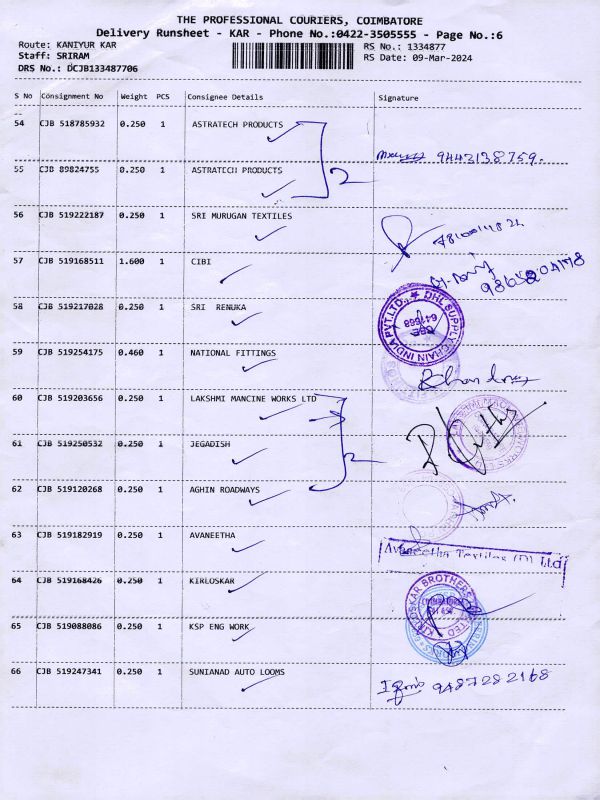 THE PROFESSIONAL COURIERS, COIMBATORE
Delivery Runsheet - KAR - Phone No.:0422-3505555 - Page No.:6
Route: KANIYUR KAR
RS No.: 1334877
Staff: SRIRAM
RS Date: 09-Mar-2024
DRS No.: DCJB133487706
S No Consignment No Weight PCS Consignee Details Signature
54 CJB 518785932 0.250 1 ASTRATECH PRODUCTS
9443138759.
55 CJB 89824755 0.250 1 ASTRATECH PRODUCTS
2
56 CJB 519222187 0.250 1 SRI MURUGAN TEXTILES
57 CJB 519168511 1.600 1 CIBI
58 CJB 519217028 0.250 1 SRI RENUKA
DHL SUPPLY CHAIN INDIA PVT.LTD.,
CBE
641668
59 CJB 519254175 0.460 1 NATIONAL FITTINGS
60 CJB 519203656 0.250 1 LAKSHMI MANCINE WORKS LTD
61 CJB 519250532 0.250 1 JEGADISH
2
62 CJB 519120268 0.250 1 AGHIN ROADWAYS
63 CJB 519182919 0.250 1 AVANEETHA
Avaneetha Textiles (P) Ltd
64 CJB 519168426 0.250 1 KIRLOSKAR
KIRLOSKAR BROTHERS LIMITED
65 CJB 519088086 0.250 1 KSP ENG WORK
66 CJB 519247341 0.250 1 SUNIANAD AUTO LOOMS
9487282168